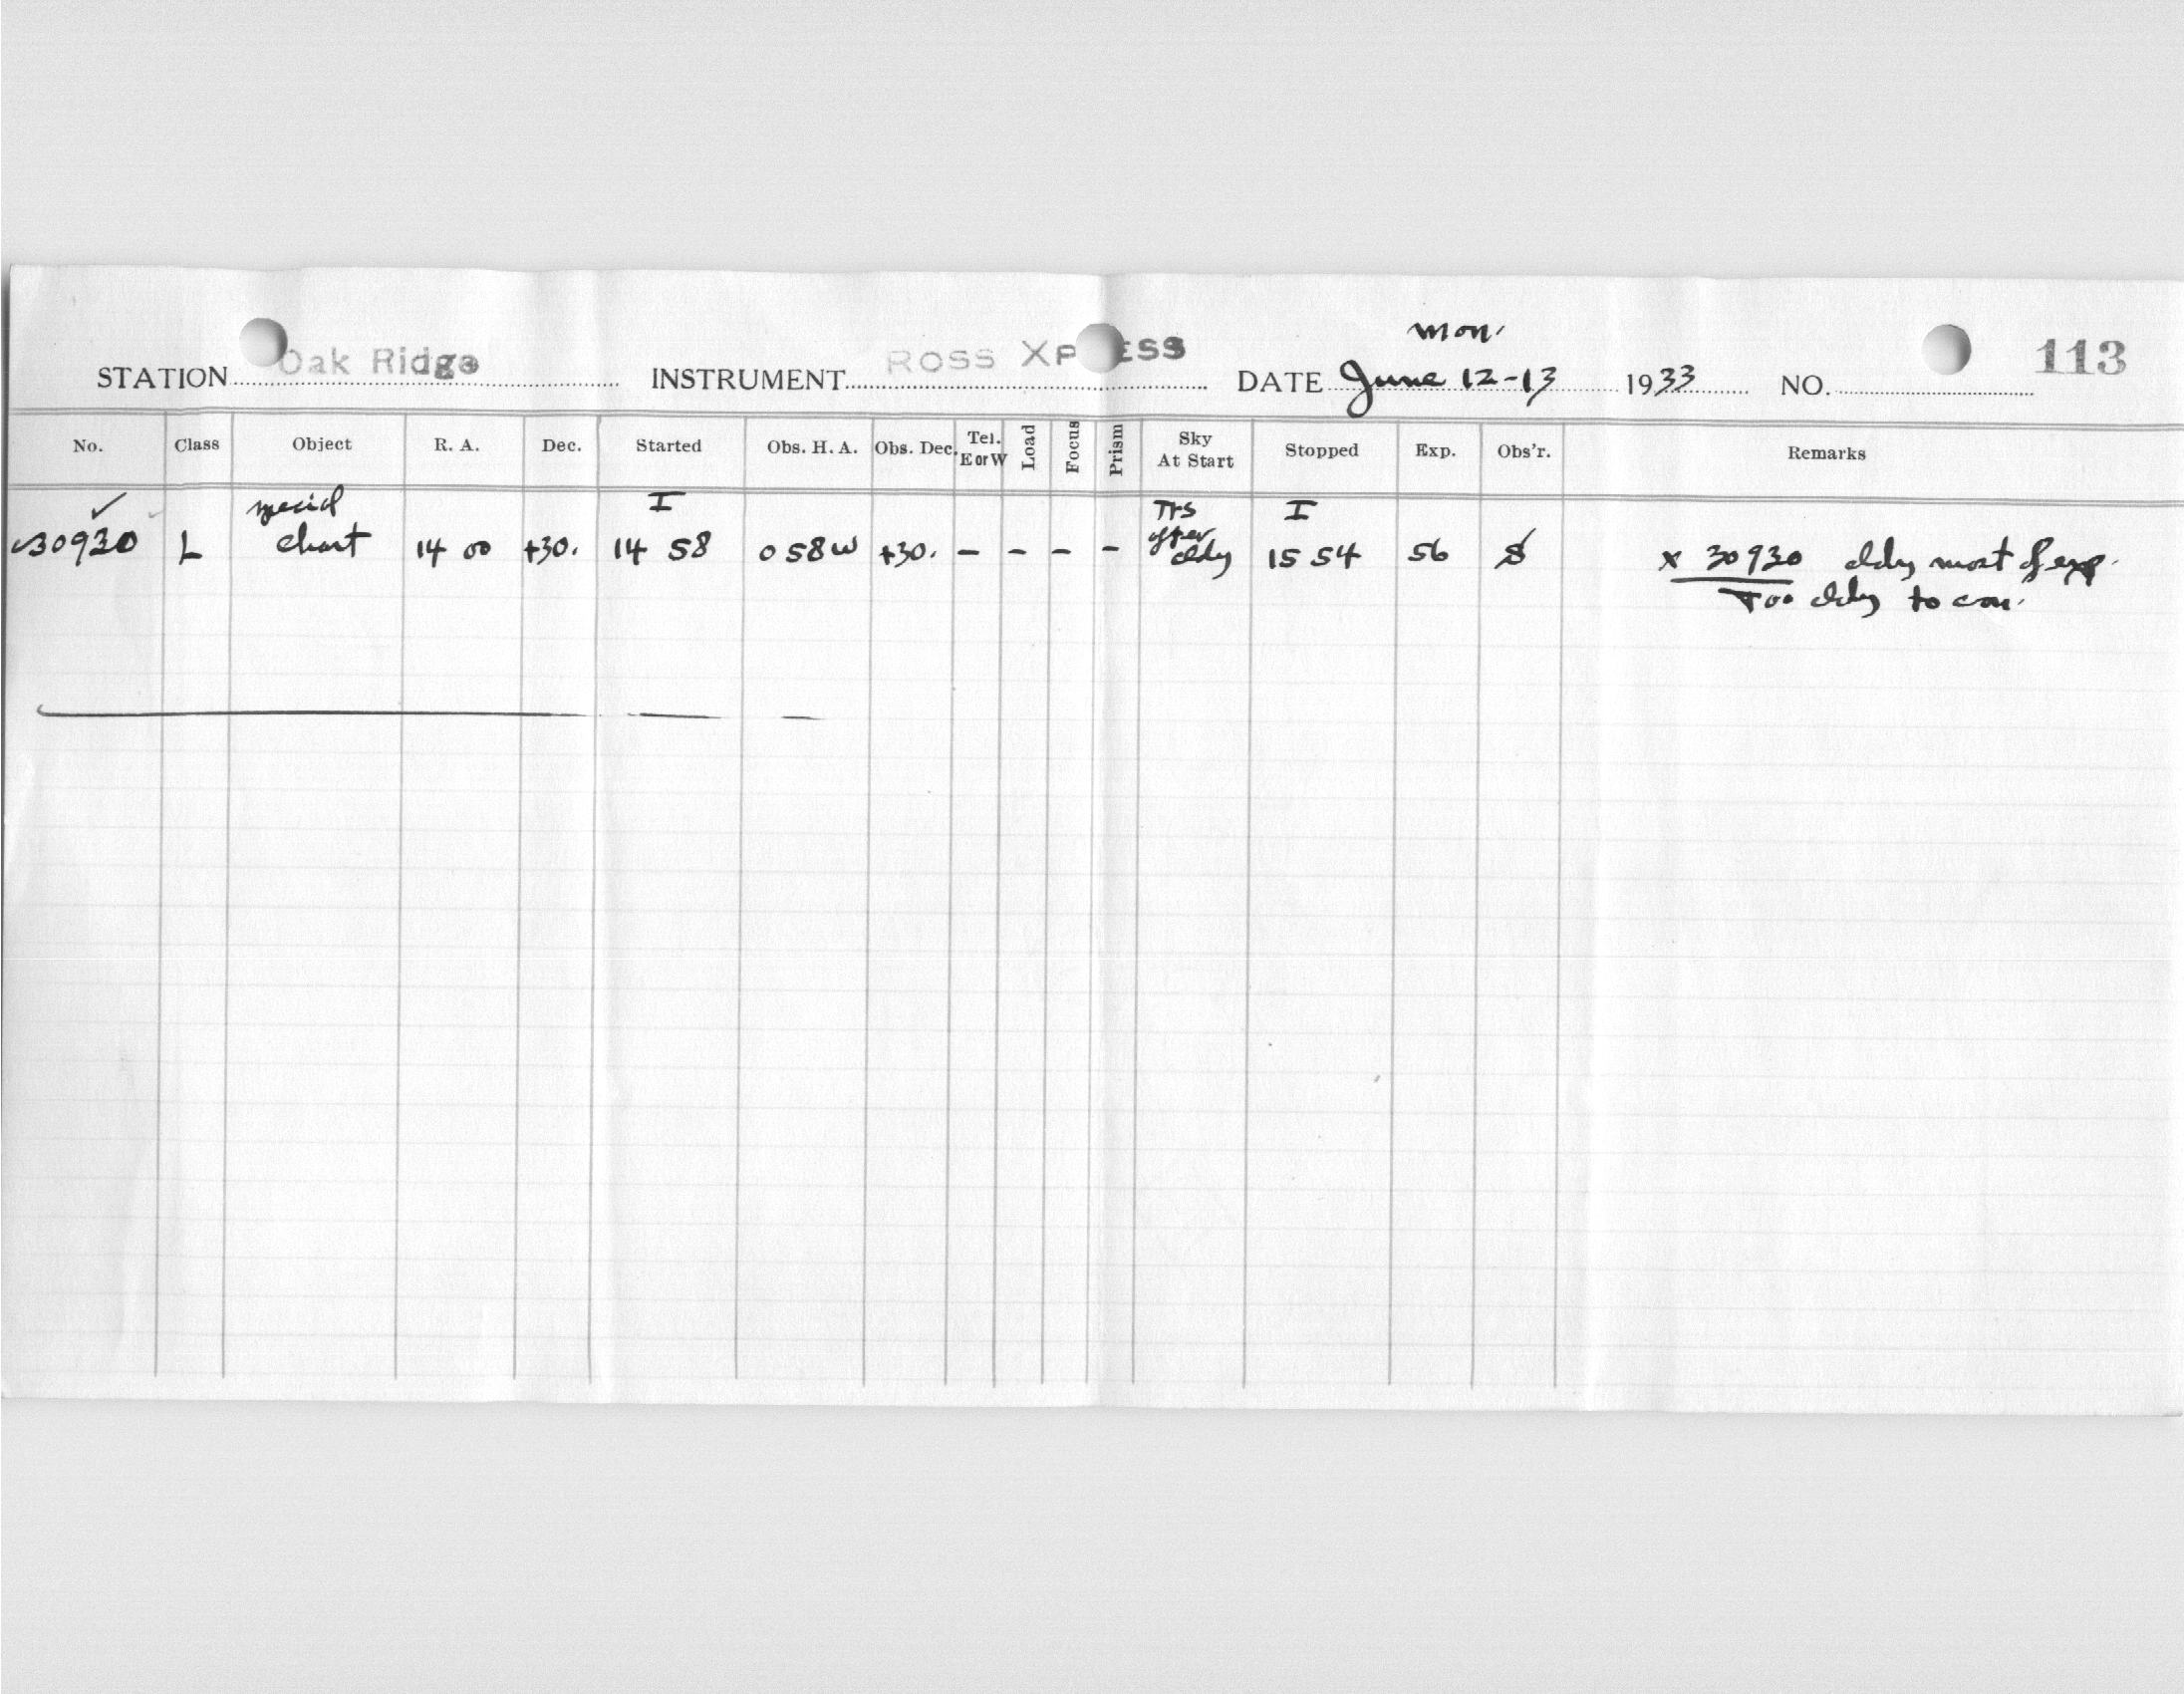 mon.
STATION Oak Ridge INSTRUMENT ROSS XPRESS DATE June 12-13 1933 NO. 113
No. Class Object R. A. Dec. Started Obs. H. A. Obs. Dec. Tel. E or W Load Focus Prism Sky At Start Stopped Exp. Obs'r. Remarks
special I Trs I
30930 L chart 14 00 +30. 14 58 0 58 W +30. - - - - after cldy 15 54 56 S x 30930 cldy most of exp.
Too cldy to con.